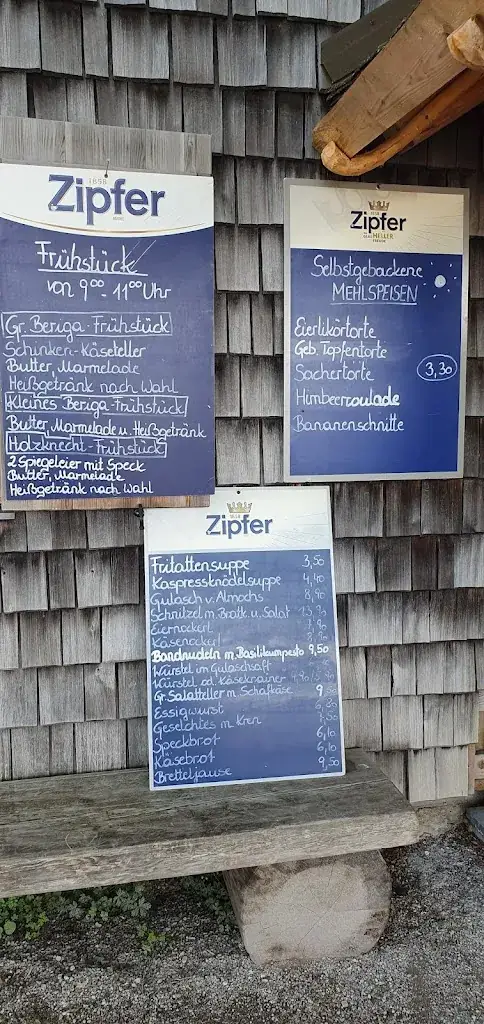 1858
Zipfer
Frühstück
von 9⁰⁰-11⁰⁰ Uhr
Gr. Beriga-Frühstück
Schinken-Käseteller
Butter, Marmelade
Heißgetränk nach Wahl
Kleines Beriga-Frühstück
Butter, Marmelade u. Heißgetränk
Holzknecht-Frühstück
2 Spiegeleier mit Speck
Butter, Marmelade
Heißgetränk nach Wahl
Zipfer
HELLER
Selbstgebackene
MEHLSPEISEN
Eierlikörtorte
Geb. Topfentorte
Sachertorte 3,30
Himbeerroulade
Bananenschnitte
Zipfer
Fritattensuppe 3,50
Kaspressknödelsuppe 4,40
Gulasch v. Almochs 8,90
Schnitzel m. Bratk. u. Salat
Eiernockerl
Käsenockerl
Bandnudeln m. Basilikumpesto 9,50
Würstel im Gulaschsaft
Würstel od. Käsekrainer
Gr. Salatteller m. Schafkäse
Essigwurst
Geselchtes m. Kren
Speckbrot 6,10
Käsebrot 6,10
Bretteljause 9,50